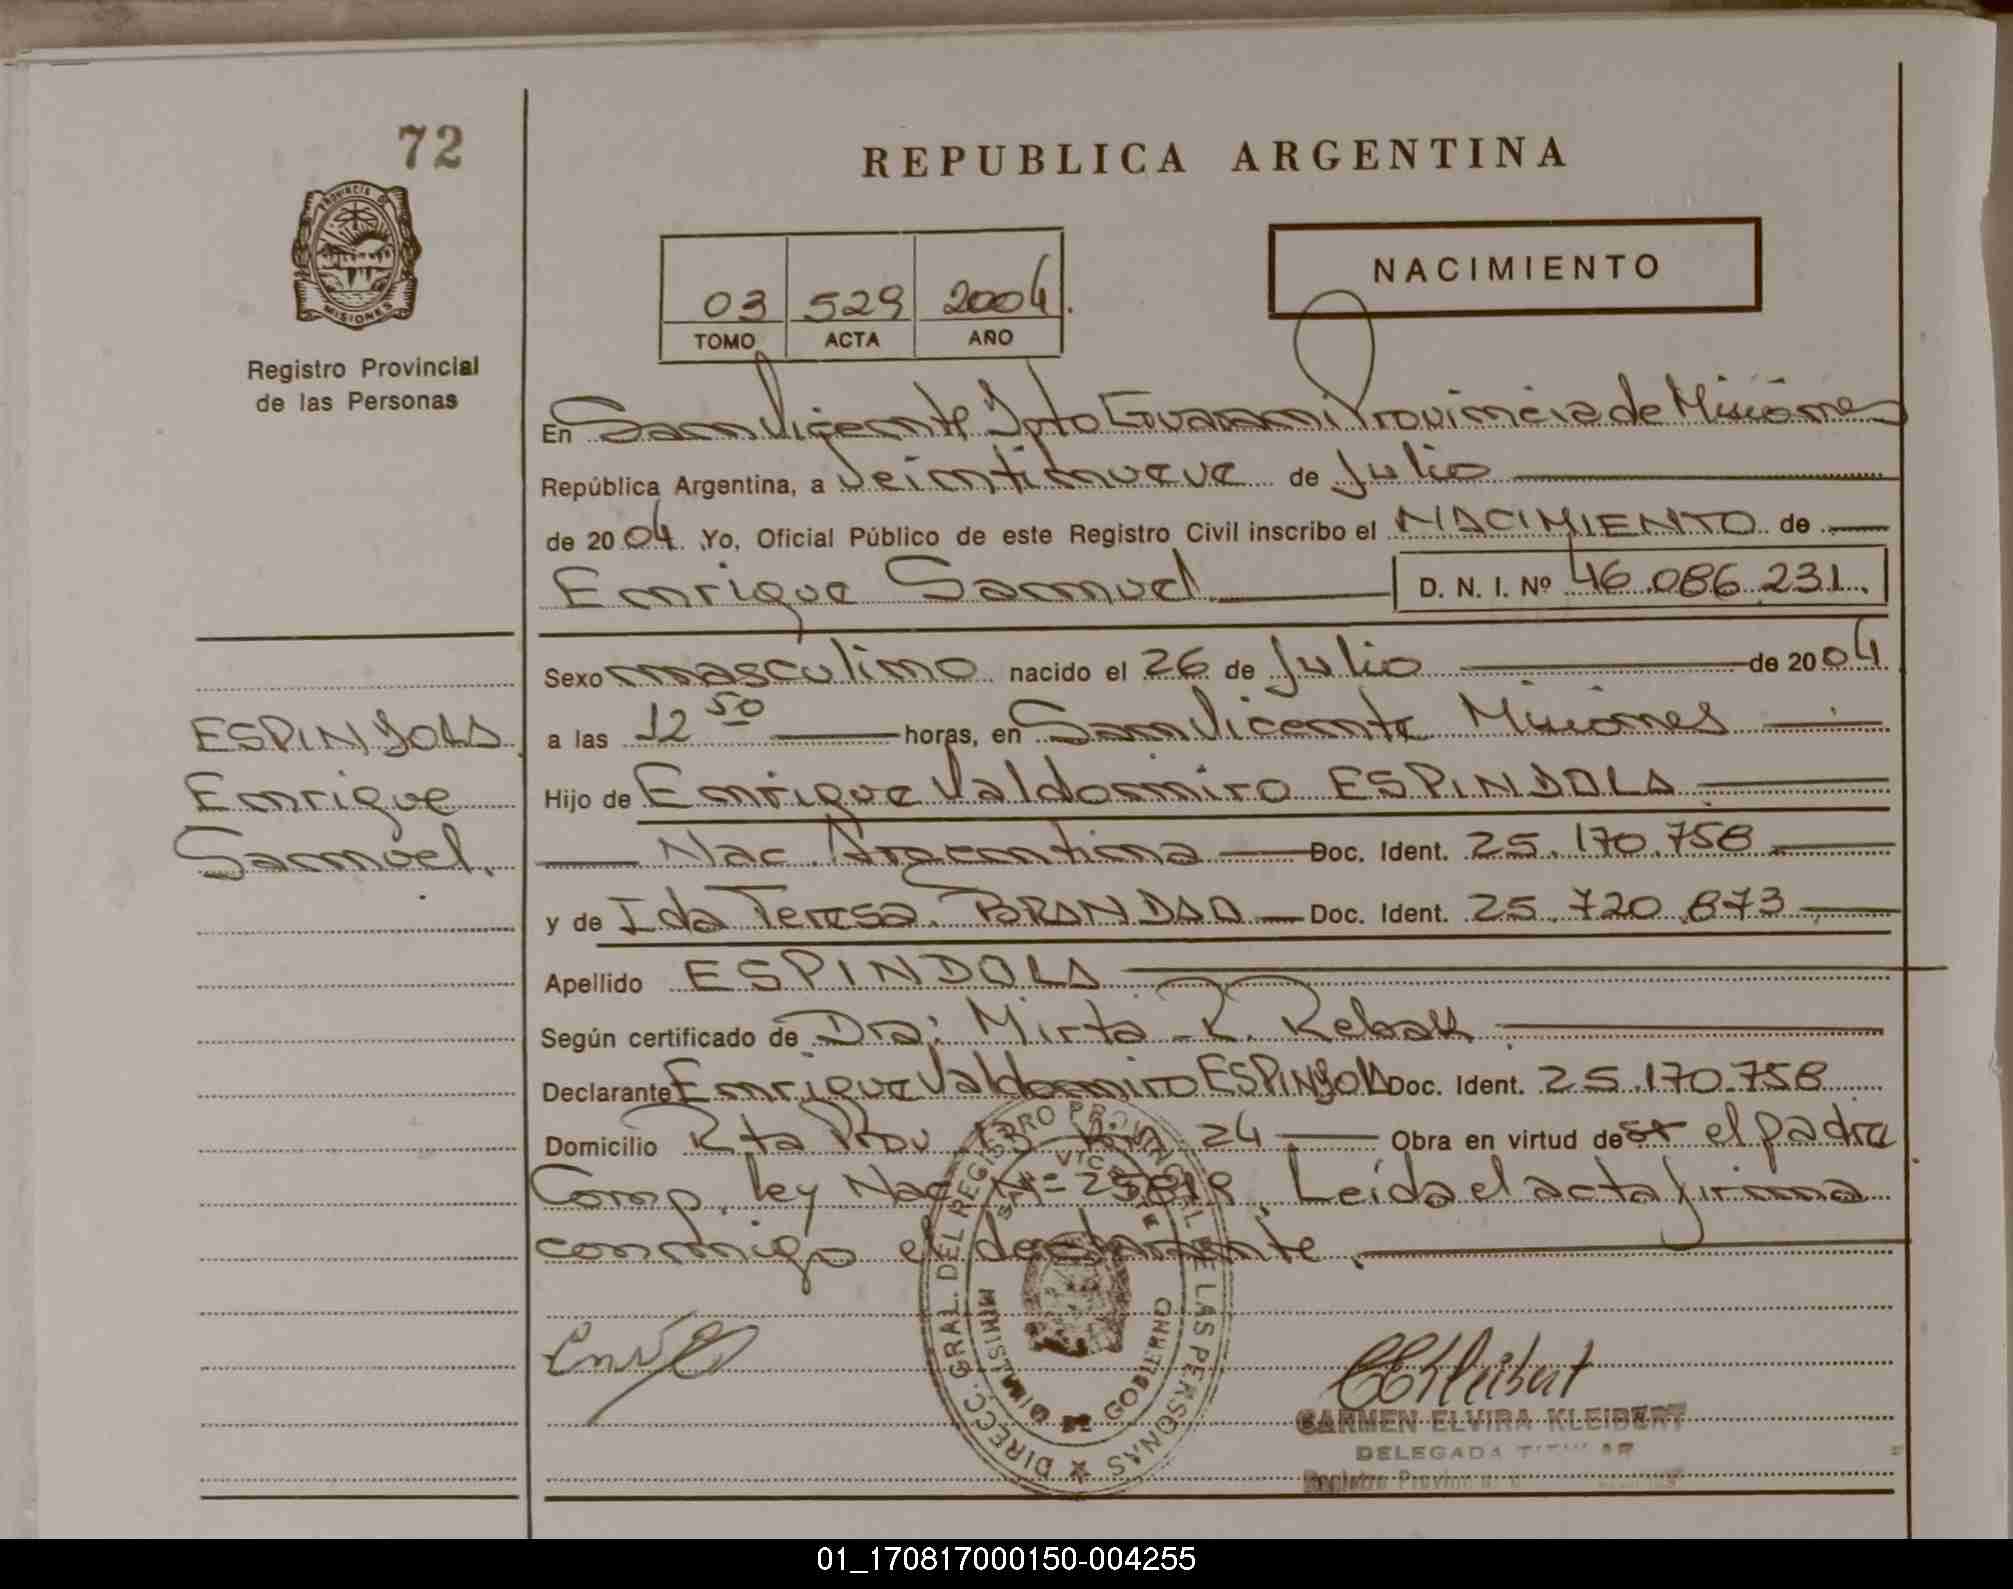 72
REPUBLICA ARGENTINA
PROVINCIA DE
MISIONES
Registro Provincial
de las Personas
03 529 2004.
TOMO ACTA AÑO
NACIMIENTO
En San Vicente Dpto Guarani Provincia de Misiones
República Argentina, a veintinueve de Julio
de 2004. Yo, Oficial Público de este Registro Civil inscribo el NACIMIENTO de
Enrique Samuel D. N. I. Nº 46.086.231.
Sexo masculino nacido el 26 de Julio de 2004
a las 12 50 horas, en San Vicente Misiones
Hijo de Enrique Valdomiro ESPINDOLA
Nac. Argentina Doc. Ident. 25.170.758
y de Ida Teresa BRANDAO Doc. Ident. 25.720.873
Apellido ESPINDOLA
Según certificado de Dra: Mirta R. Rebak
Declarante Enrique Valdomiro ESPINDOLA Doc. Ident. 25.170.758
Domicilio Rta Prov 13 Km 24 Obra en virtud de el padre
Comp. ley Nac Nº= 25819. Leída el acta firma
conmigo el declarante.
ESPINDOLA
Enrique
Samuel.
DIRECC. GRAL. DEL REGISTRO PROVINCIAL DE LAS PERSONAS
SAN VICENTE
MINISTERIO DE GOBIERNO
CEKleibert
CARMEN ELVIRA KLEIBERT
DELEGADA TITULAR
Registro Provincial
01_170817000150-004255